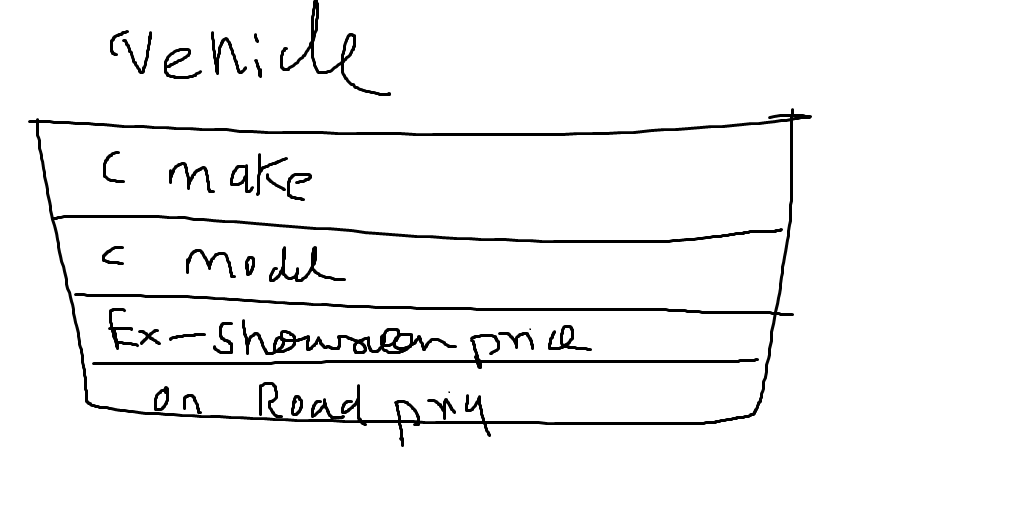 Vehicle
C make
C model
Ex-Showroom price
on Road